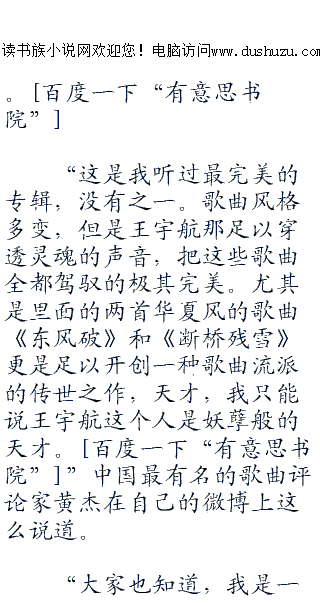 读书族小说网欢迎您！电脑访问www.dushuzu.com
。[百度一下“有意思书
院”]
“这是我听过最完美的
专辑，没有之一。歌曲风格
多变，但是王宇航那足以穿
透灵魂的声音，把这些歌曲
全都驾驭的极其完美。尤其
是里面的两首华夏风的歌曲
《东风破》和《断桥残雪》
更是足以开创一种歌曲流派
的传世之作，天才，我只能
说王宇航这个人是妖孽般的
天才。[百度一下“有意思书
院”]”中国最有名的歌曲评
论家黄杰在自己的微博上这
么说道。
“大家也知道，我是一